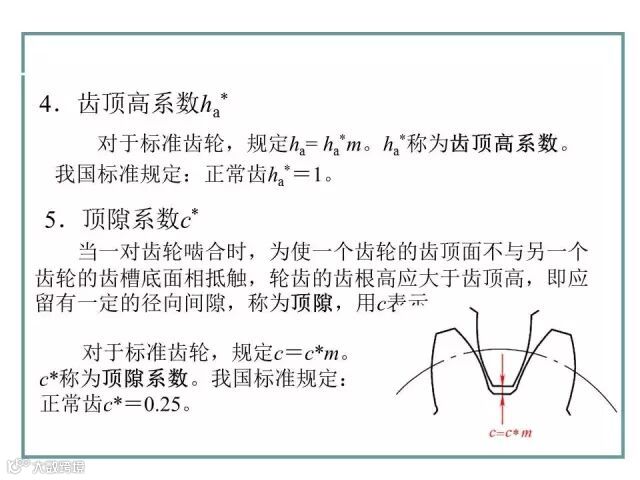 4．齿顶高系数hₐ*
对于标准齿轮，规定hₐ= hₐ*m。hₐ*称为齿顶高系数。
我国标准规定：正常齿hₐ*＝1。
5．顶隙系数c*
当一对齿轮啮合时，为使一个齿轮的齿顶面不与另一个
齿轮的齿槽底面相抵触，轮齿的齿根高应大于齿顶高，即应
留有一定的径向间隙，称为顶隙，用c表示
对于标准齿轮，规定c＝c*m。
c*称为顶隙系数。我国标准规定：
正常齿c*＝0.25。
c=c* m
大数跨境